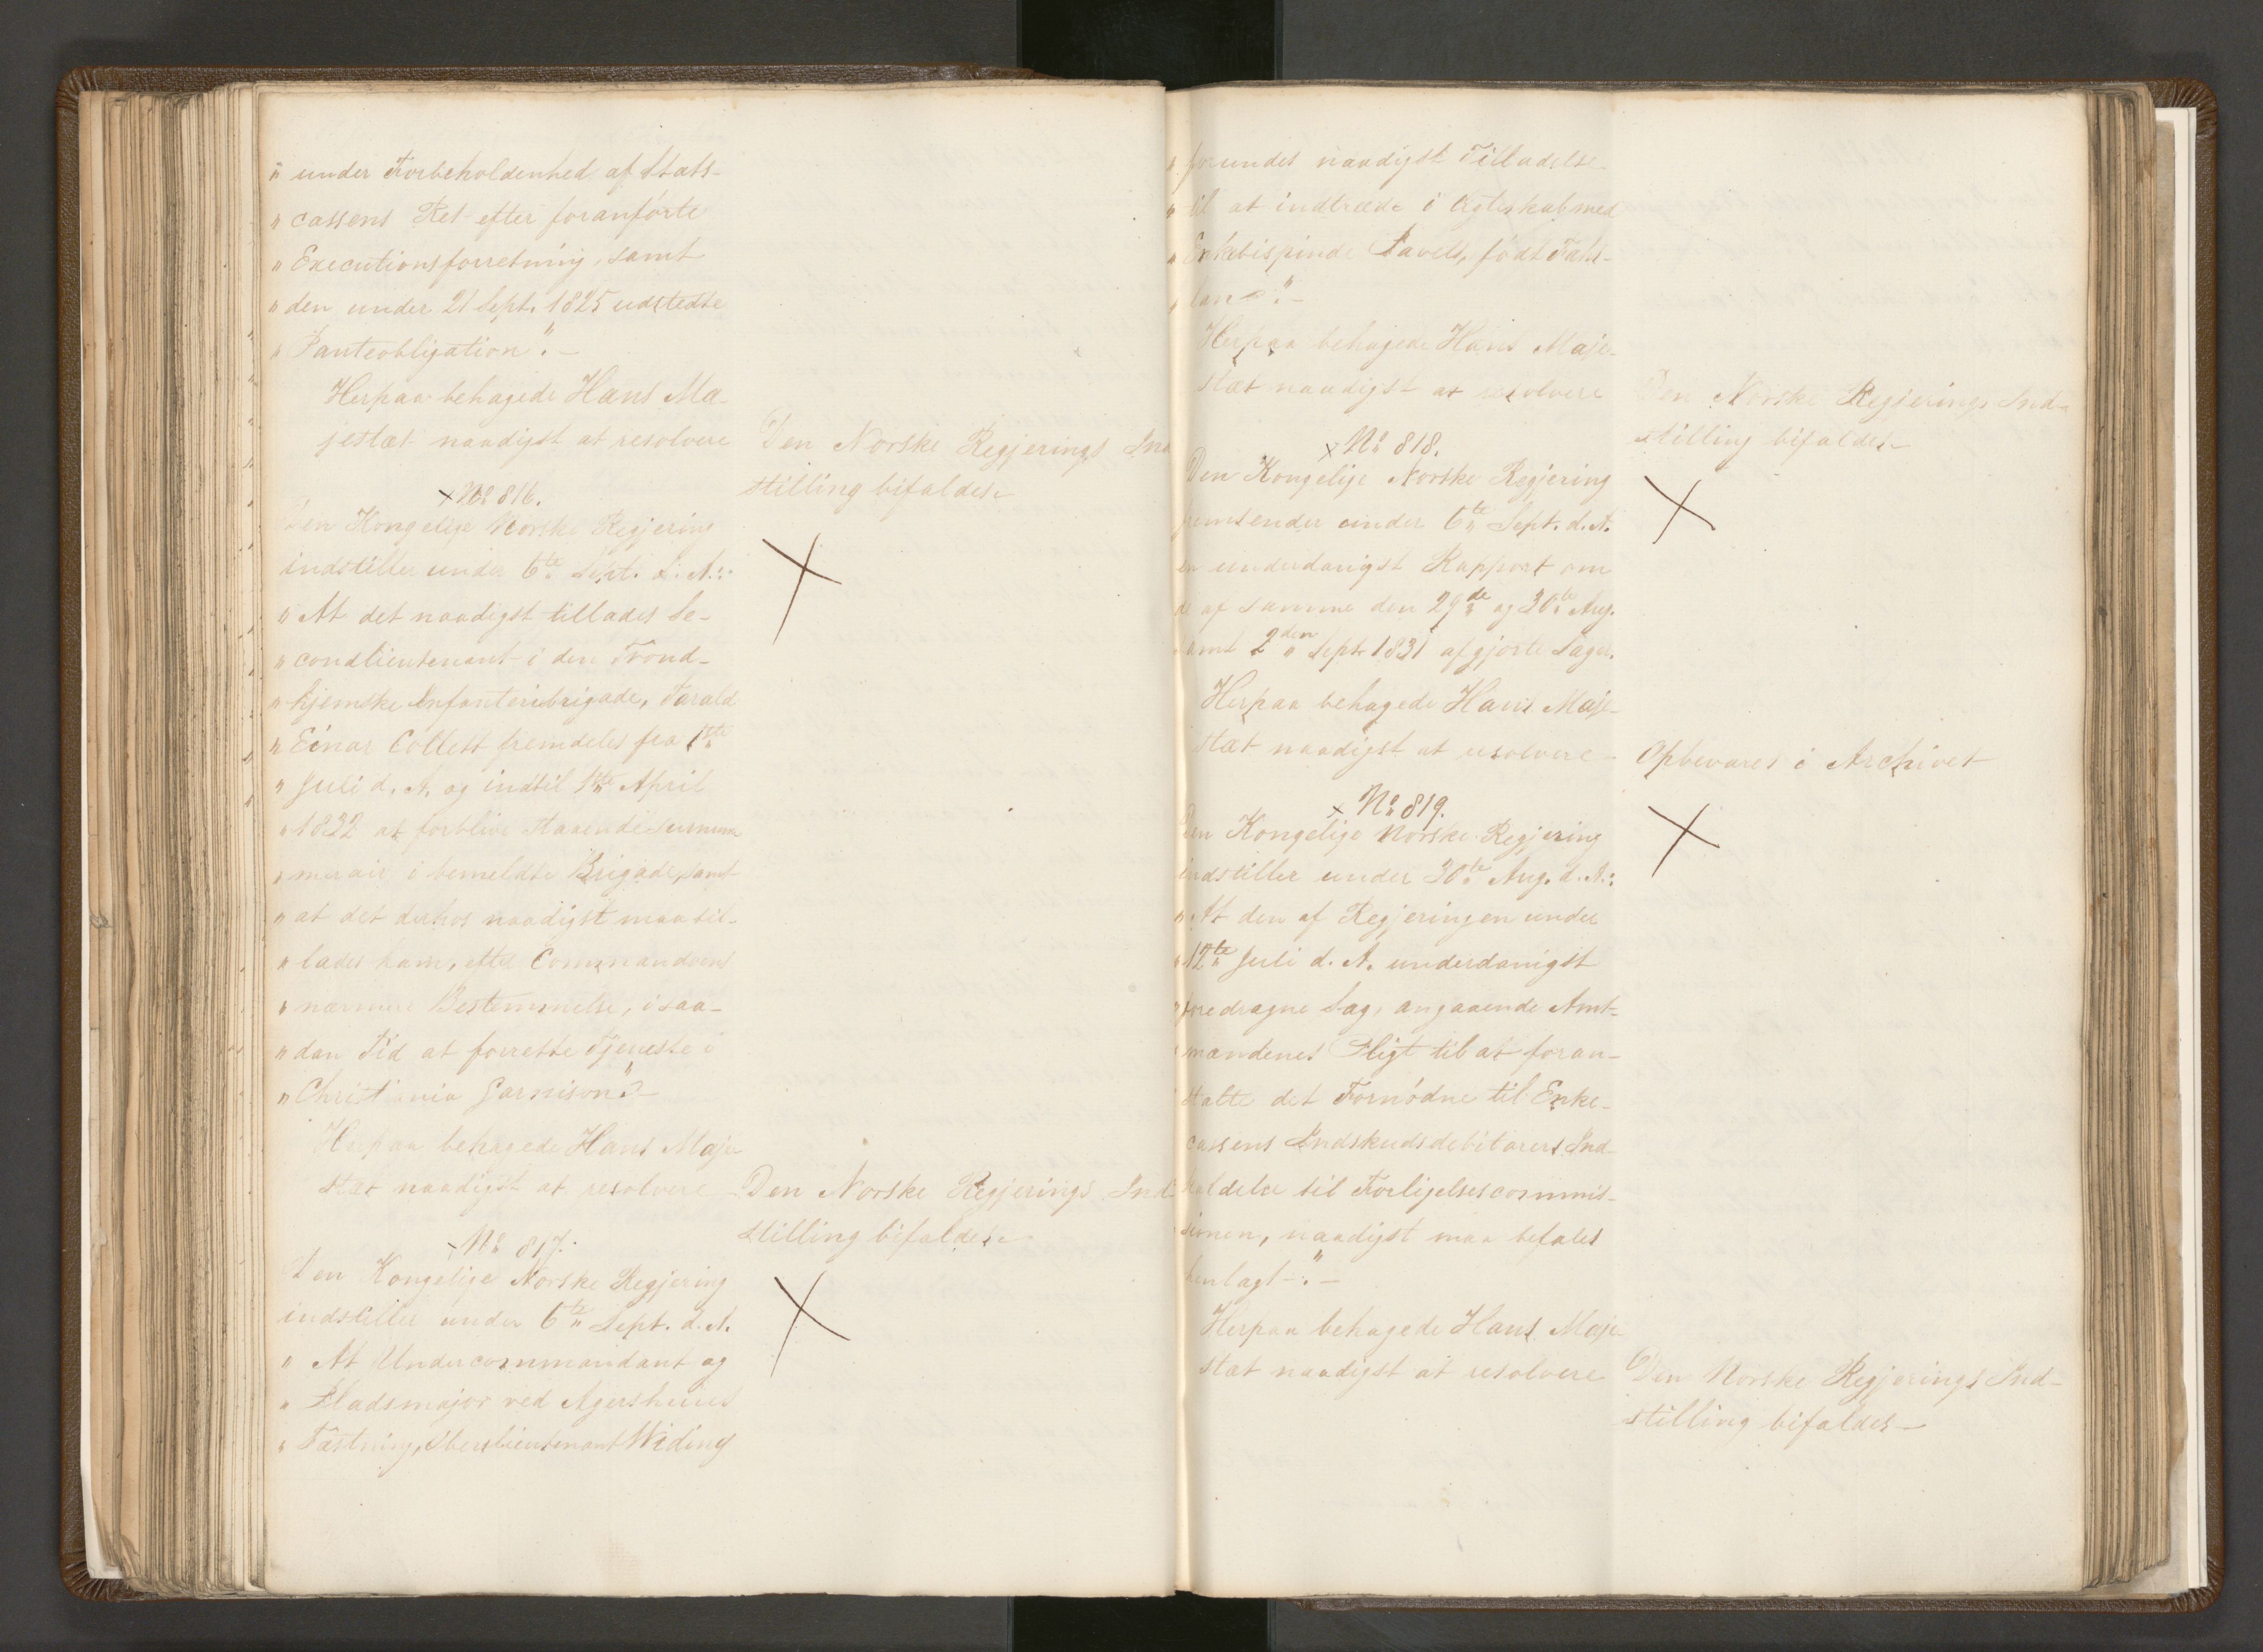 " under Forbeholdenhed af Stats-
" cassens Ret efter foranførte
" Executionsforretning, samt
" den under 21 Sept. 1825 udstedte
" Panteobligation". –
Herpaa behagede Hans Ma-
jestæt naadigst at resolvere
Den Norske Regjerings Ind
stilling bifaldes
× No 816.
Den Kongelige Norske Regjering
indstiller under 6te Sept. d. A.:
" At det naadigst tillades Se-
" condlieutenant i den Trond-
" hjemske Infanteribrigade, Harald
" Einar Collett fremdeles fra 1ste
" Juli d. A. og indtil 1ste April
" 1832 at forblive staaende surnum
" merair i bemeldte Brigade, samt
" at det derhos naadigst maa til-
" lades ham, efter Commandoens
" nærmere Bestemmelse, i saa-
" dan Tid at forrette Tjeneste i
" Christiania Garnison". –
Herpaa behagede Hans Maje
stæt naadigst at resolvere
Den Norske Regjerings Ind
stilling bifaldes
× No 817.
Den Kongelige Norske Regjering
indstiller under 6te Sept. d. A.
" At Undercommandant og
" Pladsmajor ved Agershuus
" Fæstning, Oberstlieutenant Widing
" forundes naadigst Tilladelse
" til at indtræde i Ægteskab med
" Enkebispinde Pavels, født Fahs-
" land". –
Herpaa behagede Hans Maje-
stæt naadigst at resolvere
Den Norske Regjerings Ind-
stilling bifaldes
× No 818.
Den Kongelige Norske Regjering
fremsender under 6te Sept. d. A.
en underdanigst Rapport om
de af samme den 29de og 30te Aug.
samt 2den Sept. 1831 afgjorte Sager.
Herpaa behagede Hans Maje-
stæt naadigst at resolvere –
Opbevares i Archivet
× No 819.
Den Kongelige Norske Regjering
indstiller under 30te Aug. d. A.:
" At den af Regjeringen under
" 12te Juli d. A. underdanigst
" foredragne Sag, angaaende Amt-
mændenes Pligt til at foran-
stalte det Fornødne til Enke-
cassens Indskudsdebitorers Ind-
kaldelse til Forligelsescommis-
sionen, naadigst maa befales
henlagt". –
Herpaa behagede Hans Maje-
stæt naadigst at resolvere
Den Norske Regjerings Ind-
stilling bifaldes –